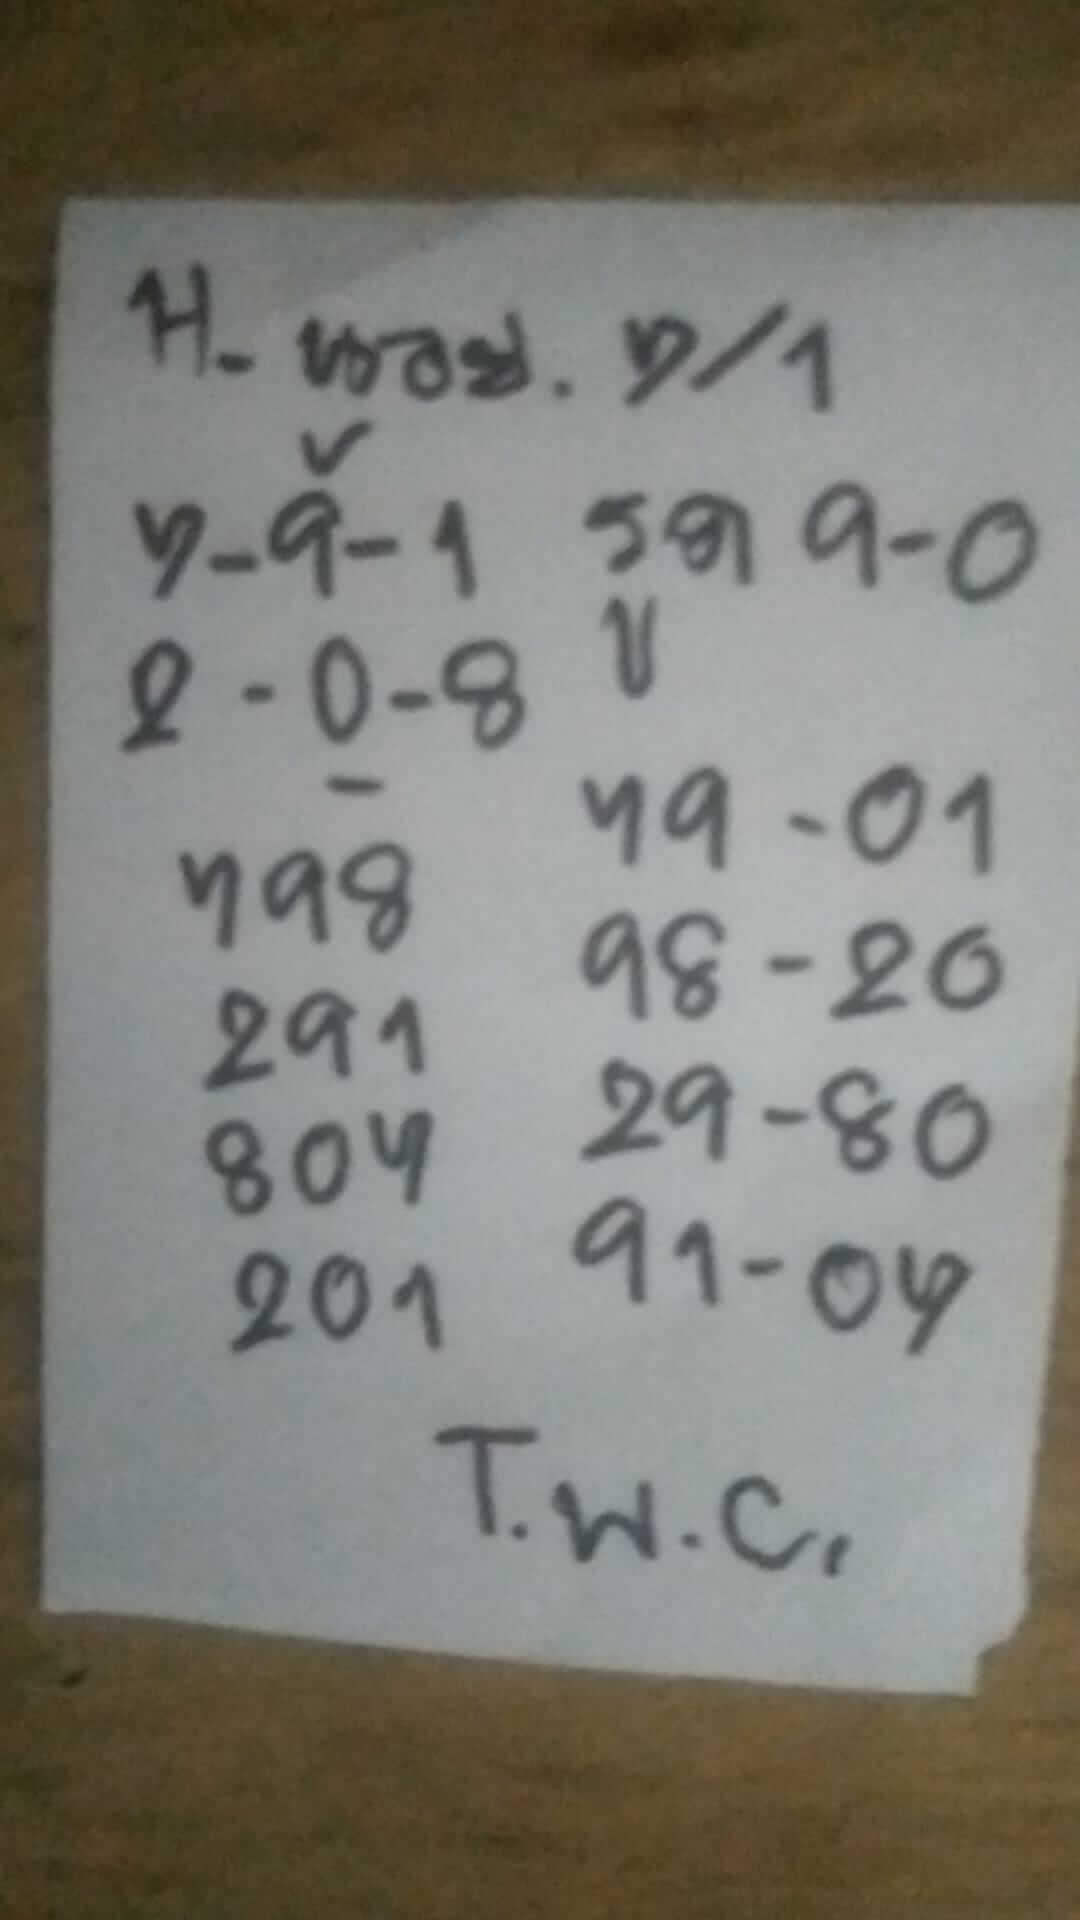 H. หวย. 7/1
7-9-1 รูด 9-0
2-0-8
798
291
804
201
79-01
98-20
29-80
91-04
T.W.C.